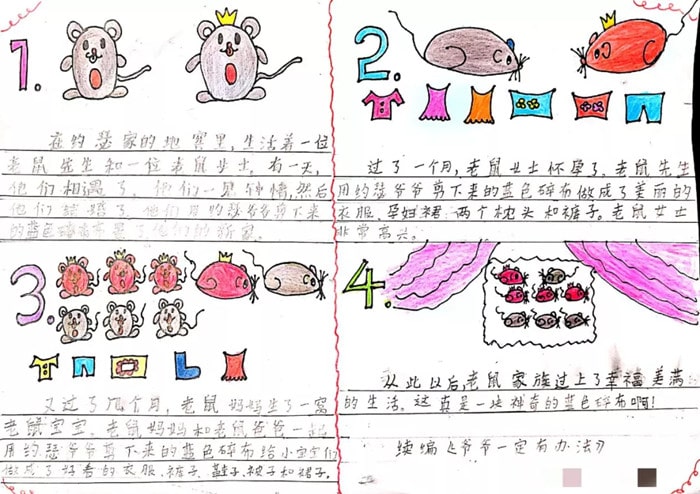 1.
在约瑟家的地窖里,生活着一位
老鼠先生和一位老鼠女士。有一天,
他们相遇了。他们一见钟情,然后
他们结婚了。他们用约瑟爷爷剪下来
的蓝色碎布
2.
过了一个月,老鼠女士怀孕了。老鼠先生
用约瑟爷爷剪下来的蓝色碎布做成了美丽的
衣服、孕妇裙、两个枕头和裤子。老鼠女士
非常高兴。
3.
又过了几个月,老鼠妈妈生了一窝
老鼠宝宝。老鼠妈妈和老鼠爸爸一起
用约瑟爷爷剪下来的蓝色碎布给小宝宝们
做成了好看的衣服、裤子、鞋子、被子和裙子。
4.
从此以后,老鼠家族过上了幸福,美满
的生活。这真是一块神奇的蓝色碎布啊!
续编《爷爷一定有办法》